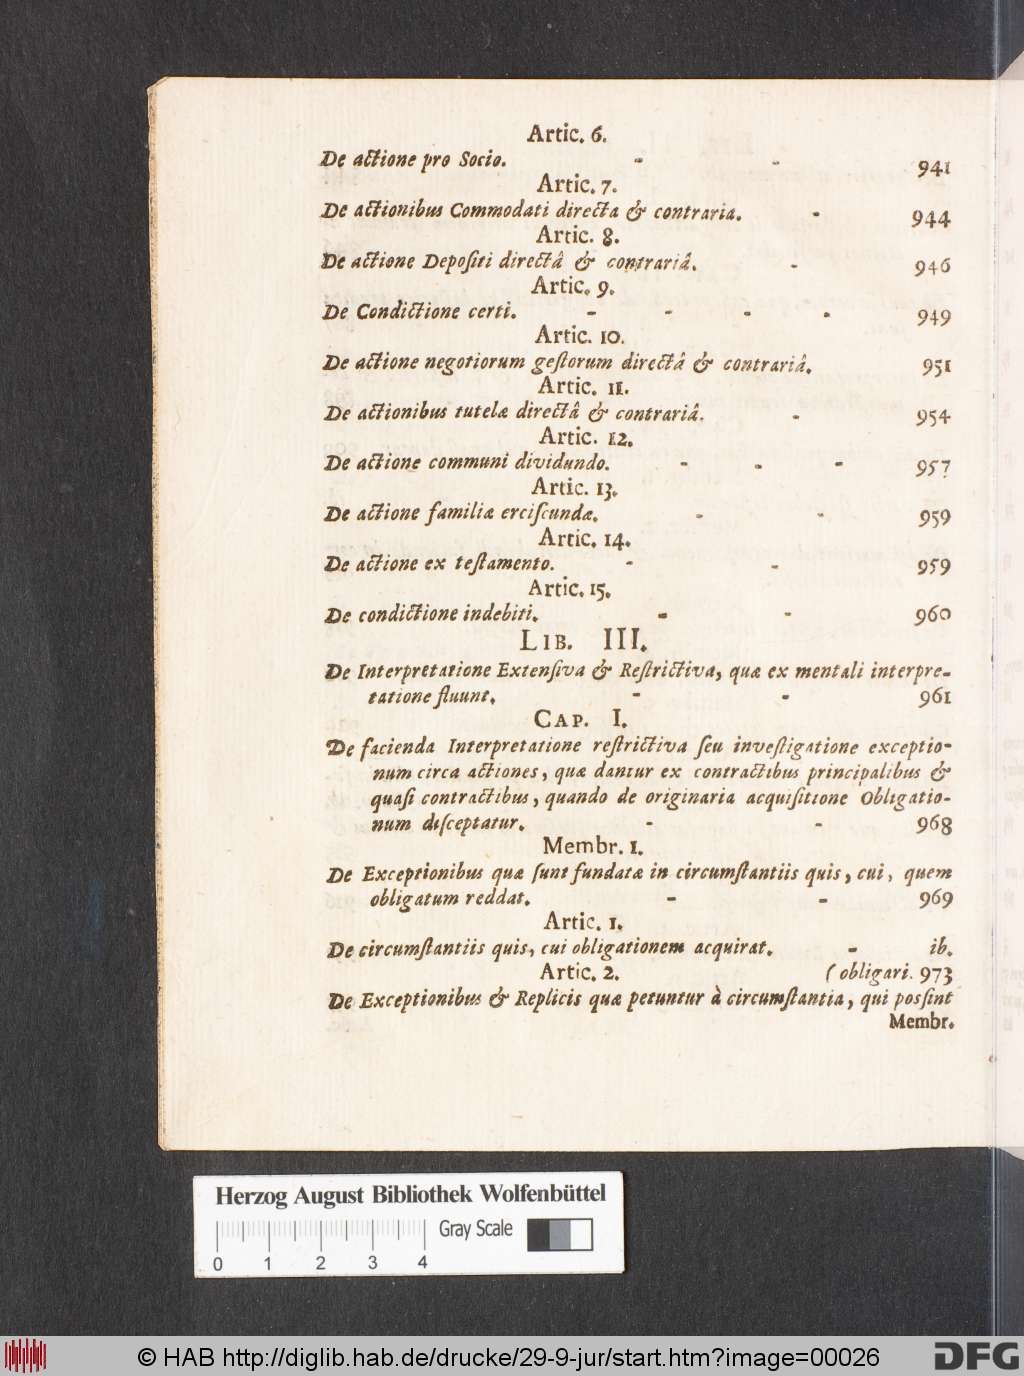 Artic. 6.
De actione pro Socio. - - 941
Artic. 7.
De actionibus Commodati directa & contraria. - 944
Artic. 8.
De actione Depoſiti directâ & contrariâ. - 946
Artic. 9.
De Condictione certi. - - - - 949
Artic. 10.
De actione negotiorum geſtorum directâ & contrariâ. 951
Artic. 11.
De actionibus tutelæ directâ & contrariâ. - 954
Artic. 12.
De actione communi dividundo. - - - 957
Artic. 13.
De actione familiæ erciſcundæ. - - 959
Artic. 14.
De actione ex teſtamento. - - 959
Artic. 15.
De condictione indebiti. - - 960
LIB. III.
De Interpretatione Extenſiva & Reſtrictiva, quæ ex mentali interpre-
tatione fluunt. - - 961
CAP. I.
De facienda Interpretatione reſtrictiva ſeu inveſtigatione exceptio-
num circa actiones, quæ dantur ex contractibus principalibus &
quaſi contractibus, quando de originaria acquiſitione Obligatio-
num diſceptatur. - - 968
Membr. 1.
De Exceptionibus quæ ſunt fundatæ in circumſtantiis quis, cui, quem
obligatum reddat. - - 969
Artic. 1.
De circumſtantiis quis, cui obligationem acquirat. - ib.
Artic. 2. (obligari. 973
De Exceptionibus & Replicis quæ petuntur à circumſtantia, qui poſſint
Membr.
Herzog August Bibliothek Wolfenbüttel
Gray Scale
0 1 2 3 4
© HAB http://diglib.hab.de/drucke/29-9-jur/start.htm?image=00026
DFG